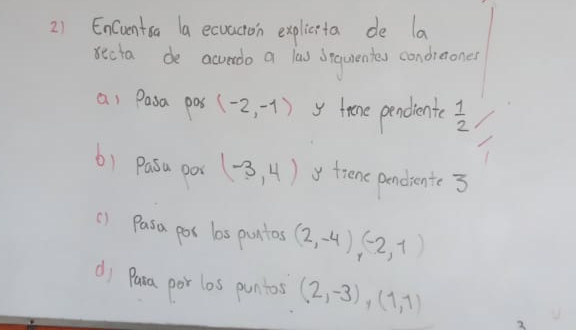 2) Encuentra la ecuación explícita de la
recta de acuerdo a las siguientes condiciones
a) Pasa por (-2,-1) y tiene pendiente 1/2
b) Pasa por (-3,4) y tiene pendiente 3
c) Pasa por los puntos (2,-4), (-2,1)
d) Pasa por los puntos (2,-3), (1,1)